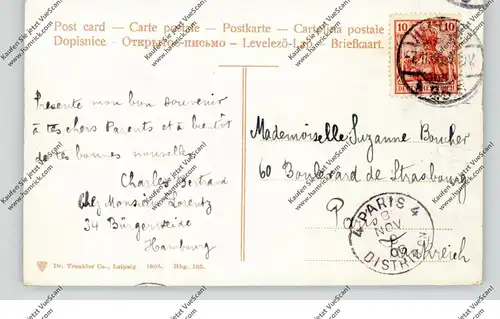 Post card – Carte postale – Postkarte – Cartolina postale
Dopisnice – Открытое письмо – Levelező-Lap – Briefkaart.
10 10
Présente mon bon souvenir
à tes chers Parents et à bientôt
de tes bonnes nouvelles
Charles Bertrand
Chez Monsieur Lorentz
34 Bürgerweide
Hamburg
Mademoiselle Suzanne Boucher
60 Boulevard de Strasbourg
Frankreich
4 PARIS 4
8
NOV
09
DISTRIBUTION
Dr. Trenkler Co., Leipzig 1904. Hbg. 105.